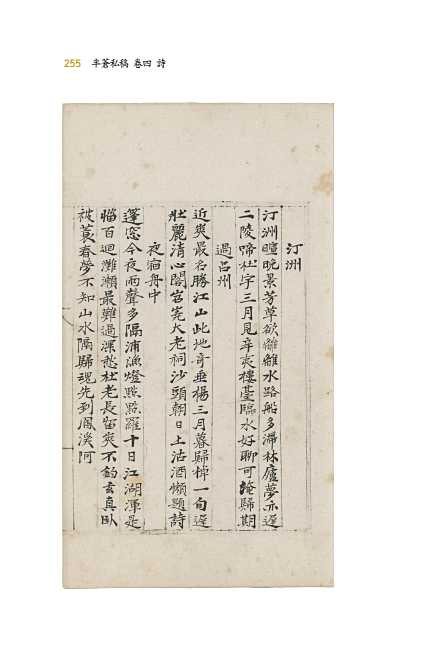 255 半蒼私稿 卷四 詩
汀洲
汀洲曈晄景芳草欲離離水路船多滯林廬夢亦遲
二陵啼杜宇三月見辛夷樓臺臨水好聊可淹歸期
過呂州
近爽最名勝江山此地奇垂楊三月暮歸棹一旬遲
壯麗清心閣宮窕大老祠沙頭朝日上沽酒懶題詩
夜宿舟中
篷窓今夜雨聲多隔浦漁燈點點羅十日江湖渾是
惱百迴灘瀨最難過深愁杜老長留爽不釣玄真臥
被蓑春夢不知山水隔歸魂先到溪阿